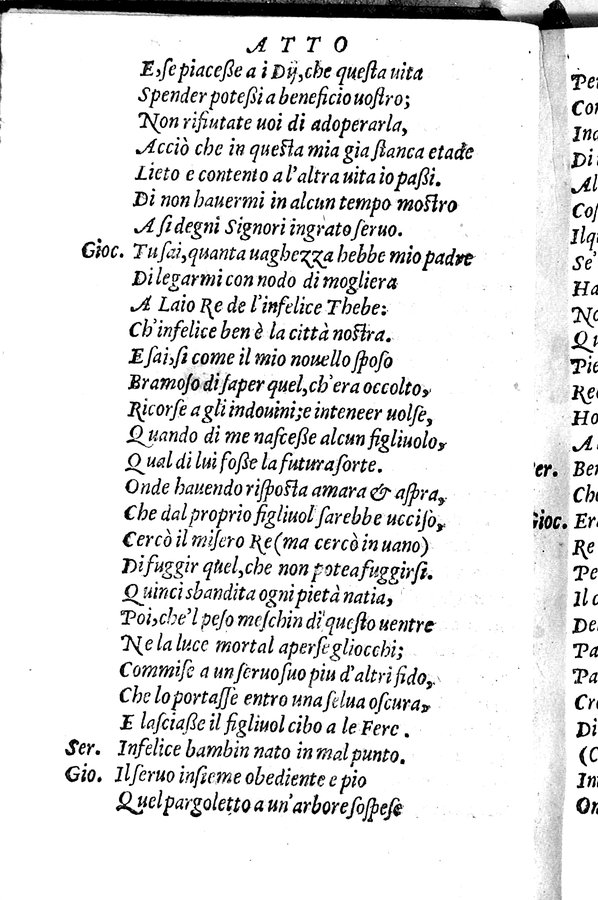 ATTO
E, se piaceße a i Dij, che questa uita
Spender poteßi a beneficio uostro;
Non rifiutate uoi di adoperarla,
Acciò che in questa mia gia stanca etade
Lieto e contento a l'altra uita io paßi.
Di non hauermi in alcun tempo mostro
A si degni Signori ingrato seruo.
Gioc. Tu sai, quanta uaghezza hebbe mio padre
Di legarmi con nodo di mogliera
A Laio Re de l'infelice Thebe:
Ch'infelice ben è la città nostra.
E sai, si come il mio nouello sposo
Bramoso di saper quel, ch'era occolto,
Ricorse a gli indouini; e inteneer uolse,
Quando di me nasceße alcun figliuolo,
Qual di lui foße la futura sorte.
Onde hauendo risposta amara & aspra,
Che dal proprio figliuol sarebbe ucciso,
Cercò il misero Re (ma cercò in uano)
Di fuggir quel, che non potea fuggirsi.
Quinci sbandita ogni pietà natia,
Poi, che'l peso meschin di questo uentre
Ne la luce mortal aperse gliocchi;
Commise a un seruo suo piu d'altri fido,
Che lo portasse entro una selua oscura,
E lasciaße il figliuol cibo a le Fere.
Ser. Infelice bambin nato in mal punto.
Gio. Il seruo insieme obediente e pio
Quel pargoletto a un'arbore sospese
Di
Se'
(C
er.
Gioc.
Re